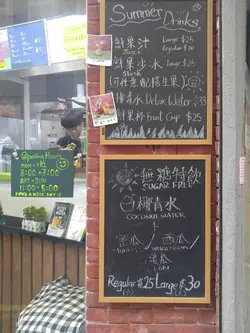 Summer
Drinks
鮮果汁 Large $25
Juice Regular $20
鮮果沙冰 Large $25
(可任意配搭生果)
椰青水 Detox Water
鮮果杯 Fruit Cup $25
無糖特飲
SUGAR FREE
椰青水
COCONUT WATER
+
蜜瓜 西瓜
Regular $25 Large $30
Opening Hours
mon - fri
8:00 - 7:00
sat - sun
11:00 - 6:00
HAVE A NICE DAY!